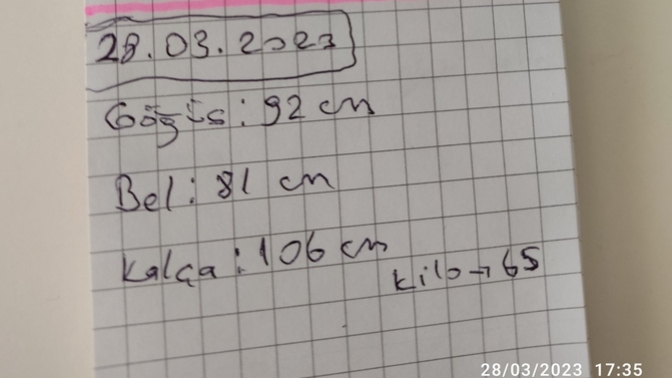 28.03.2023
Göğüs: 92 cm
Bel: 81 cm
Kalça: 106 cm
kilo→65
28/03/2023 17:35